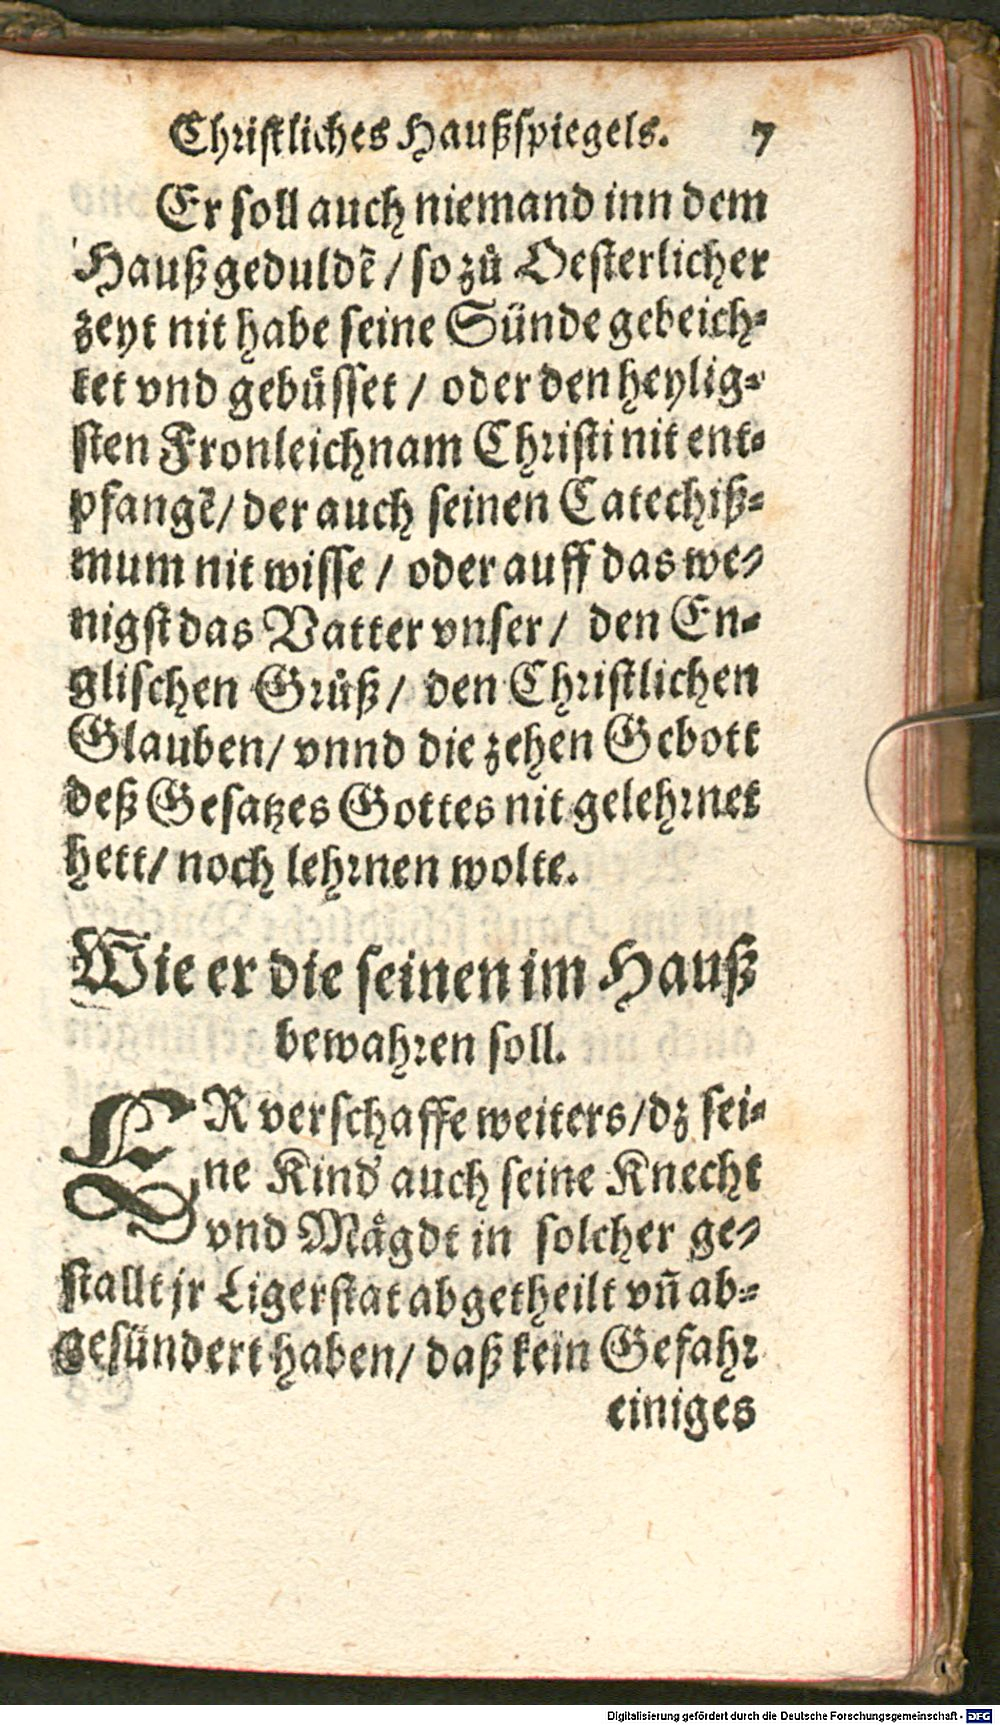 Christliches Haußspiegels. 7
Er soll auch niemand inn dem
Hauß geduldẽ / so zů Oesterlicher
zeyt nit habe seine Sünde gebeich⸗
tet vnd gebüsset / oder den heylig⸗
sten Fronleichnam Christi nit ent⸗
pfangẽ / der auch seinen Catechiß⸗
mum nit wisse / oder auff das we⸗
nigst das Vatter vnser / den En⸗
glischen Grůß / den Christlichen
Glauben / vnnd die zehen Gebott
deß Gesatzes Gottes nit gelehrnet
hett / noch lehrnen wolte.
Wie er die seinen im Hauß
bewahren soll.
ER verschaffe weiters / dz sei⸗
ne Kind auch seine Knecht
vnd Mägdt in solcher ge⸗
stallt jr Ligerstat abgetheilt vñ ab⸗
gesündert haben / daß kein Gefahr
einiges
Digitalisierung gefördert durch die Deutsche Forschungsgemeinschaft - DFG